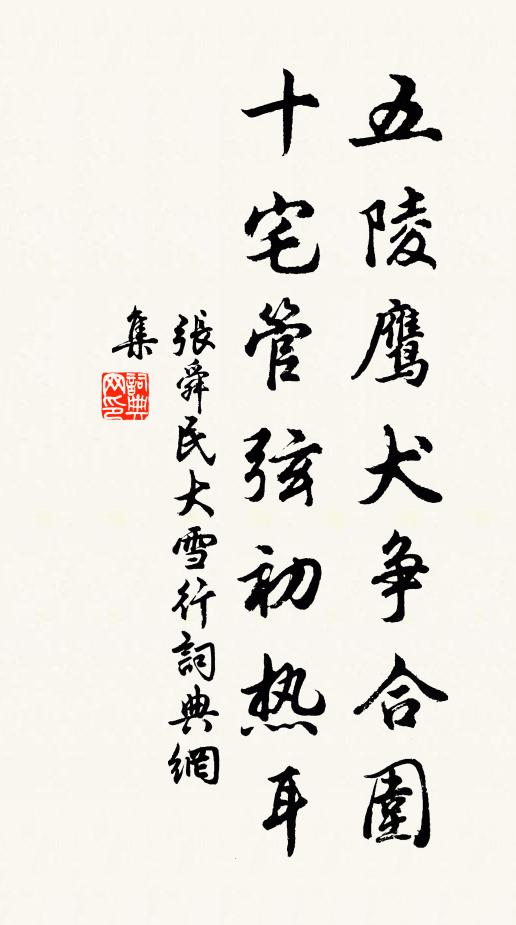 五陵鹰犬争合圍
十宅管弦初热耳
張舜民大雪行詞典網
集
詞典
网印